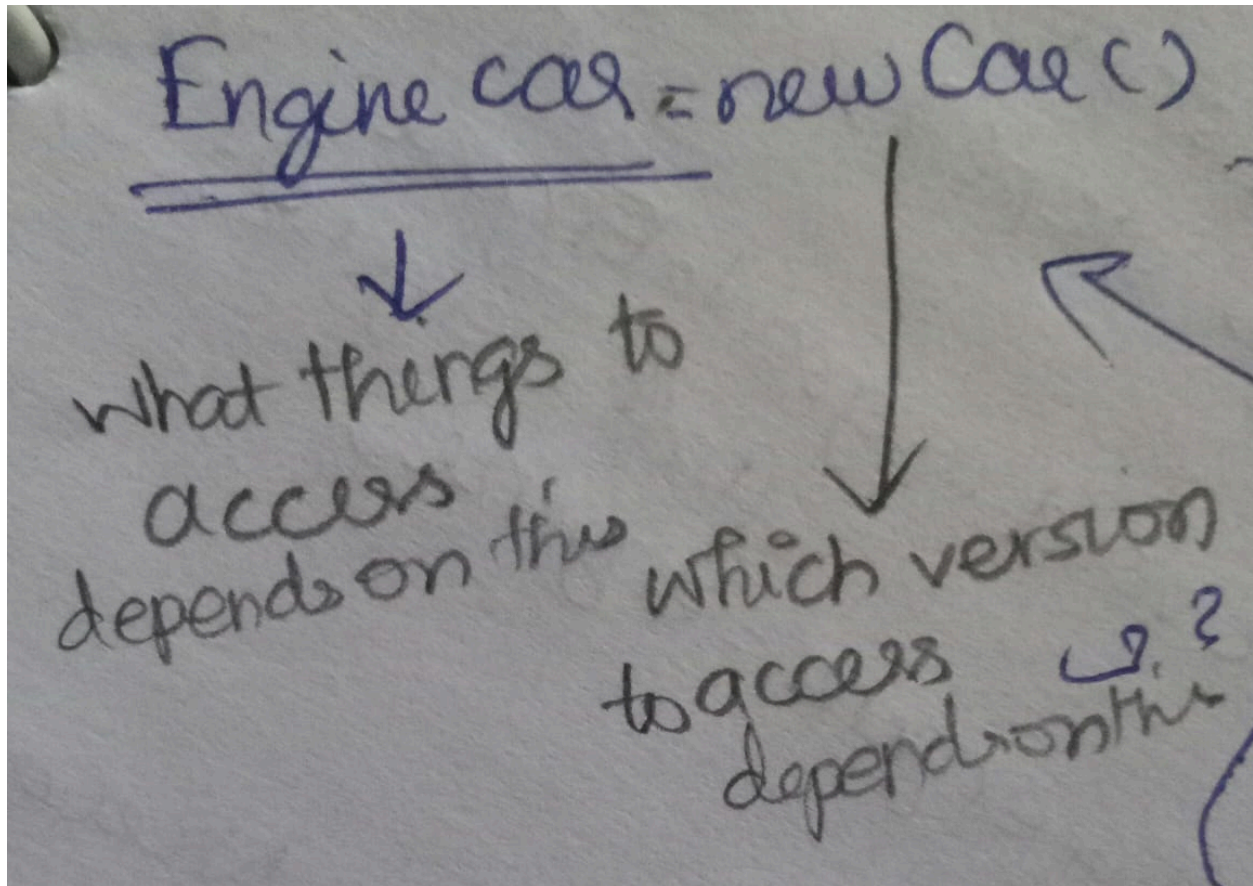 Engine car = new Car()
what things to
access
depends on this
which version
to access
depends on this
?